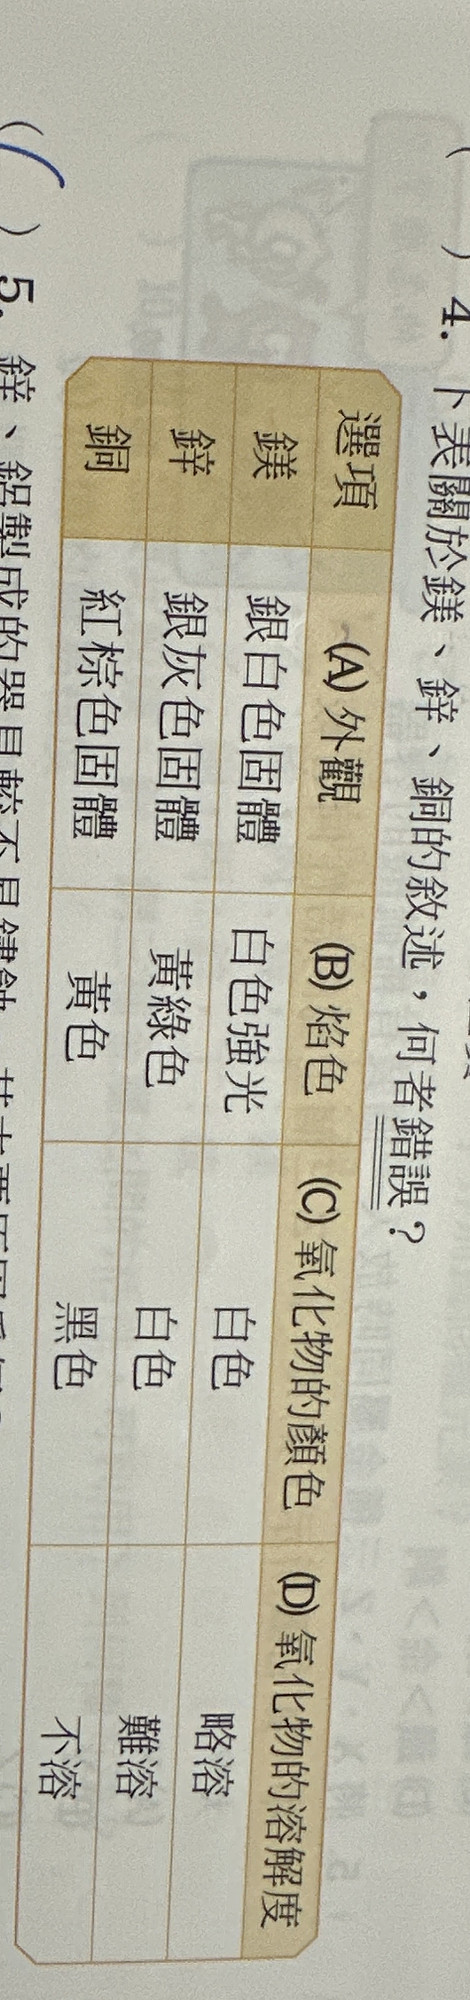 ( ) 4. 下表關於鎂、鋅、銅的敘述，何者錯誤？
選項 (A) 外觀 (B) 焰色 (C) 氧化物的顏色 (D) 氧化物的溶解度
鎂 銀白色固體 白色強光 白色 略溶
鋅 銀灰色固體 黃綠色 白色 難溶
銅 紅棕色固體 黃色 黑色 不溶
( ) 5. 鋅、鋁製成的器具較不易鏽蝕